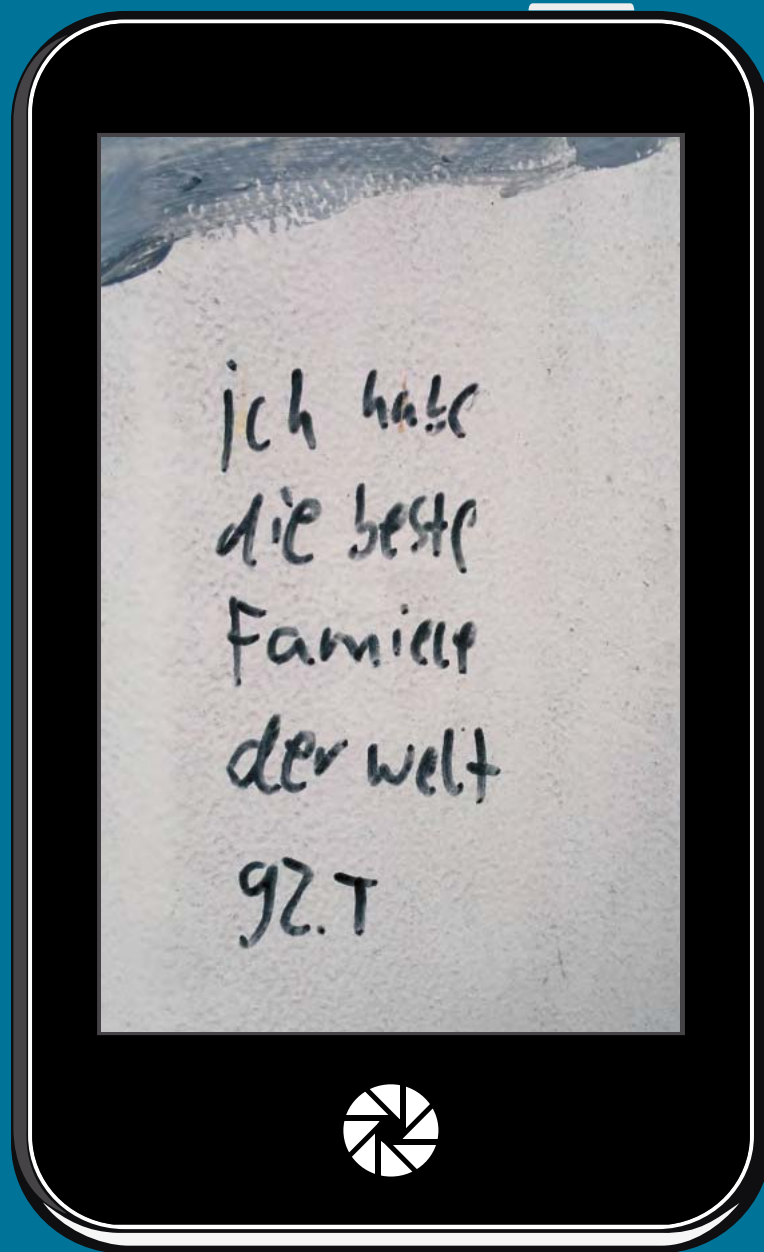 ich habe
die beste
Famiele
der welt
gz. T